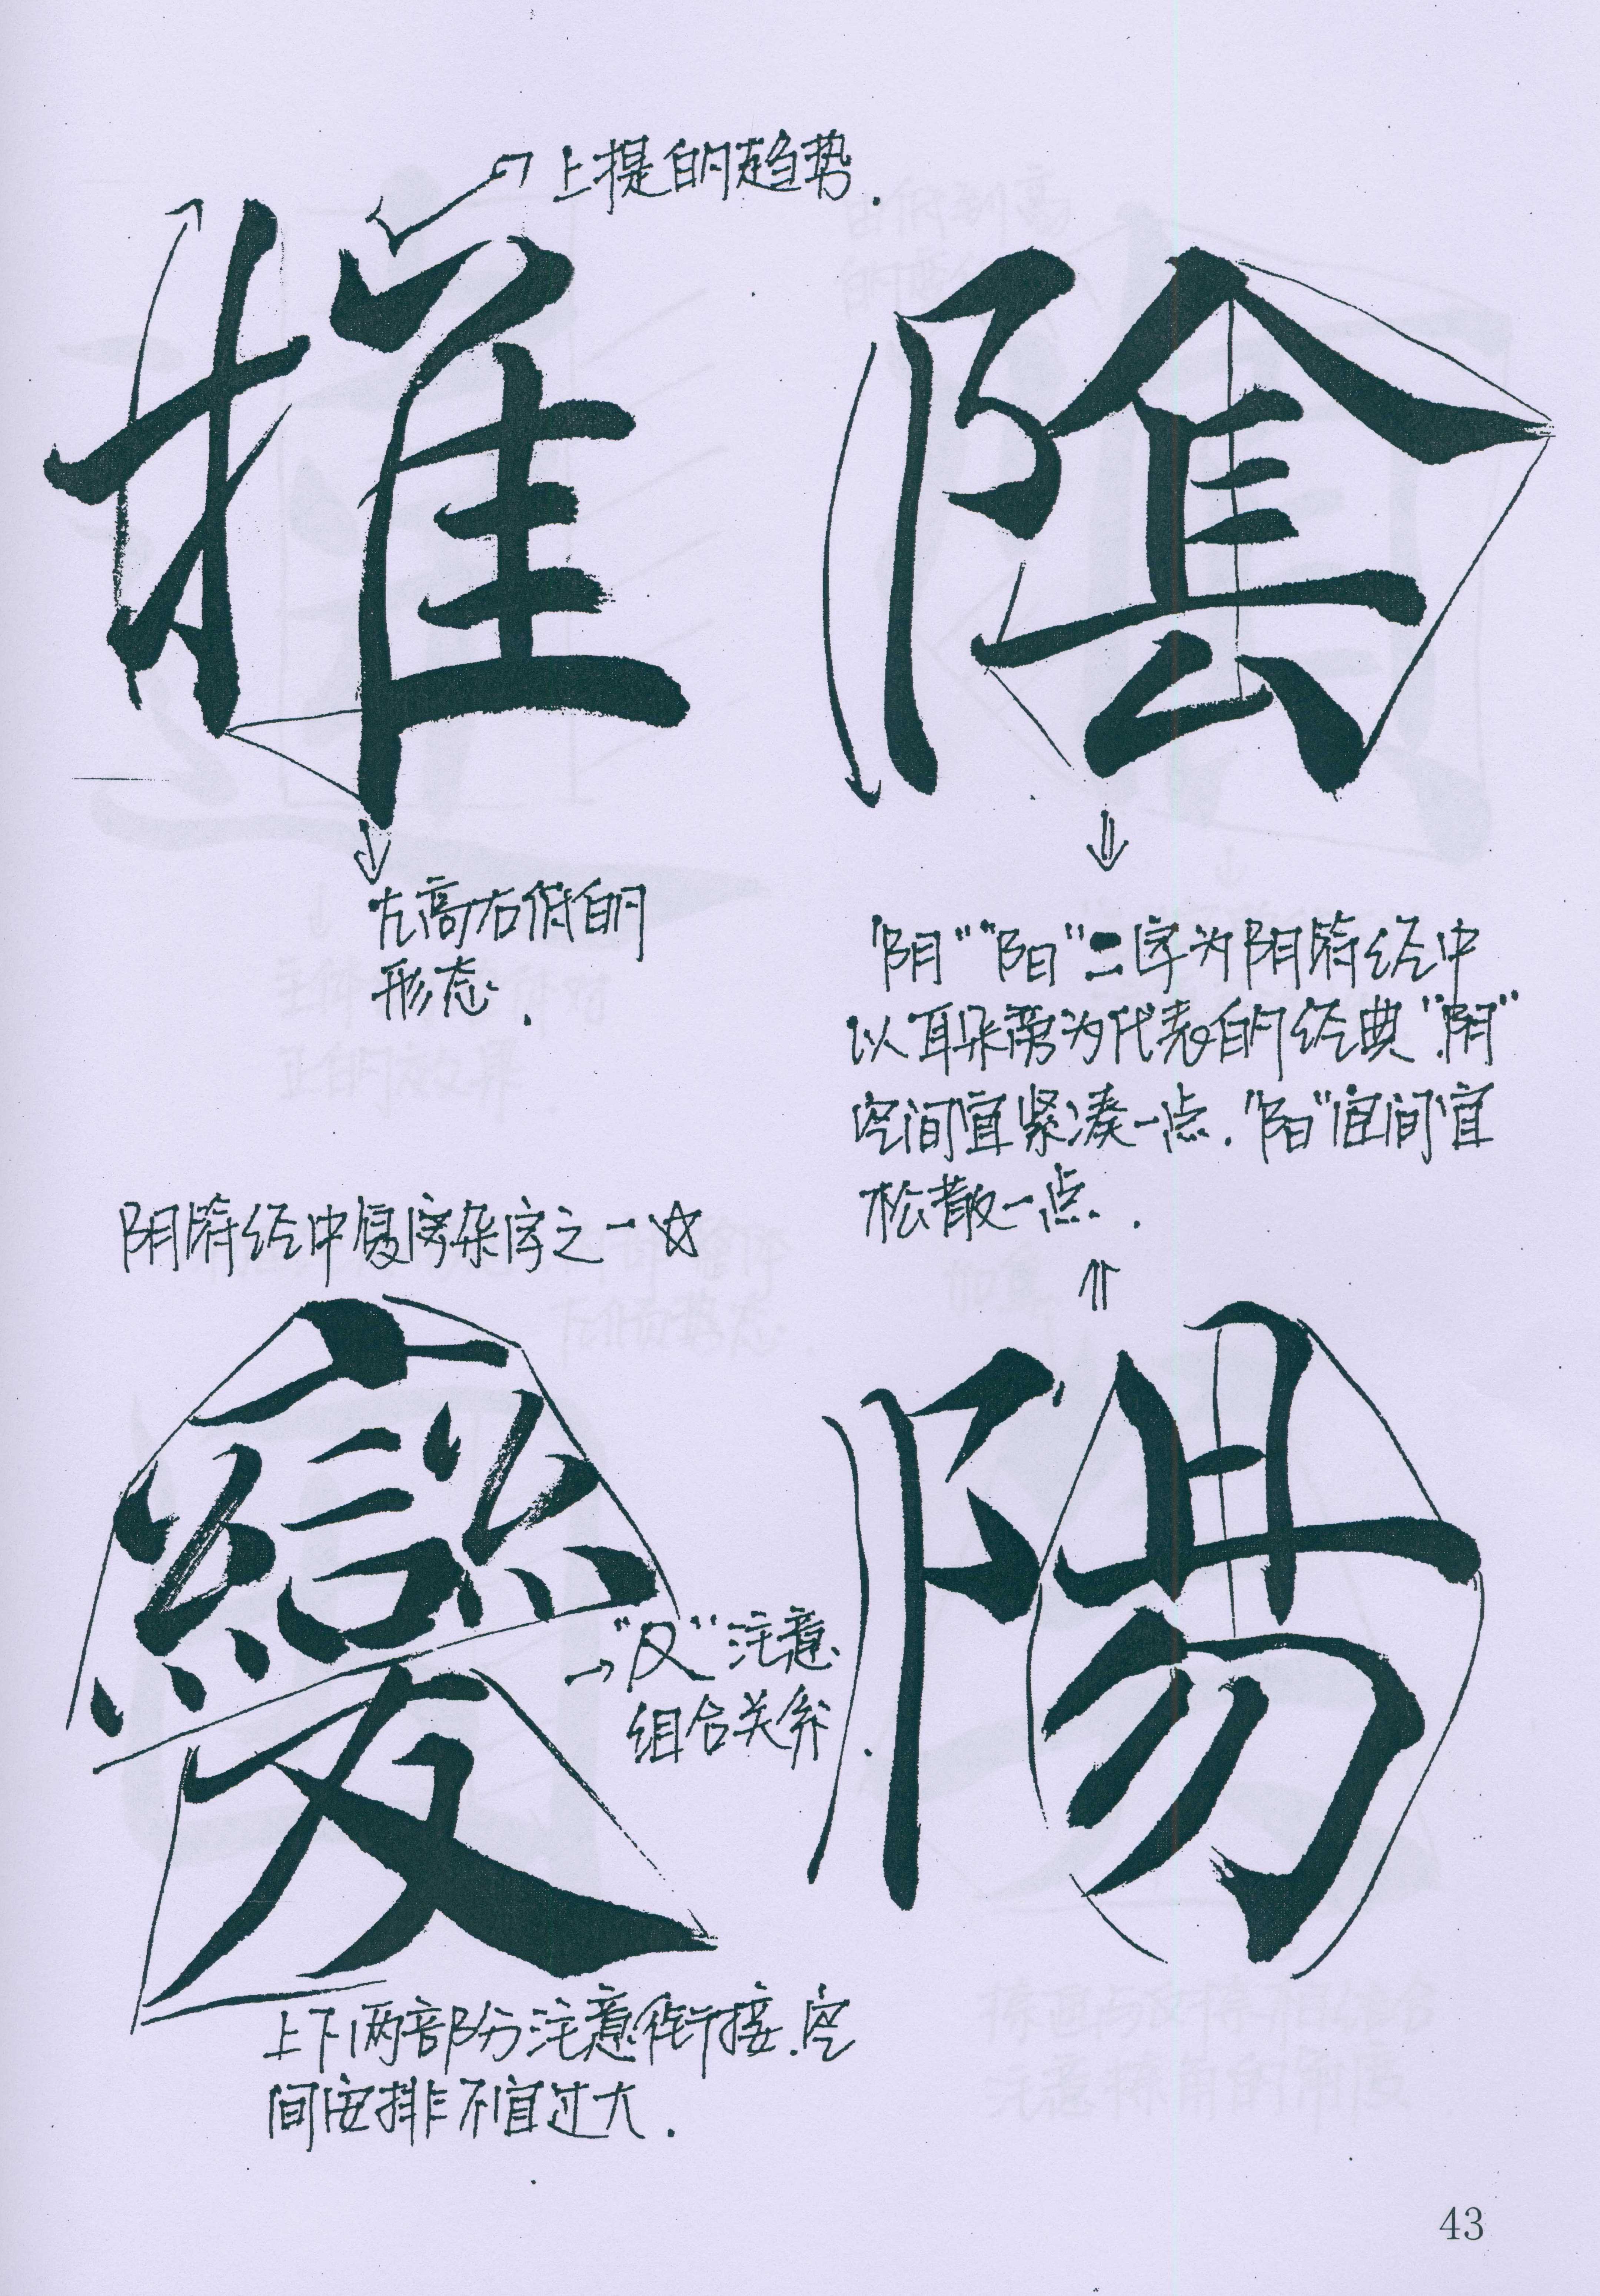 上提的趋势.
推
陰
左高右低的
形态.
"阴""阳"二字为阴符经中
以耳朵旁为代表的经典."阴"
空间宜紧凑一点."阳"空间宜
松散一点.
阴符经中复杂字之一☆
變
陽
"又"注意
组合关系.
上下两部分注意衔接.空
间安排不宜过大.
43